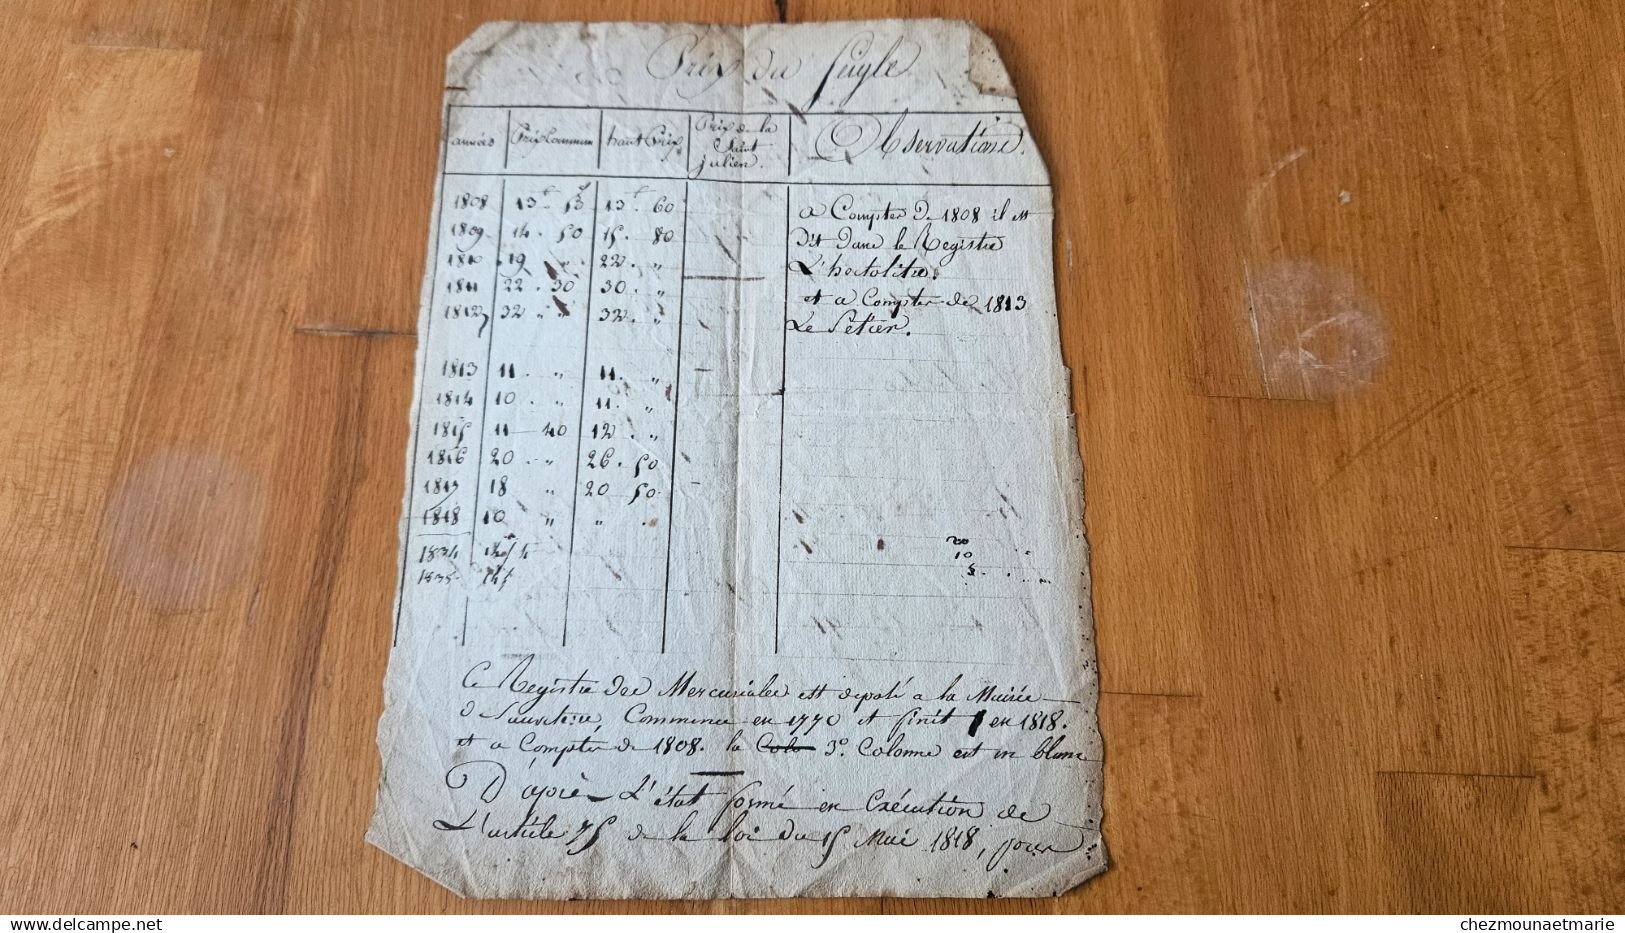 Prix du Seigle
années Prix Commun haut Prix Prix de la Saint julien. Observations.
1808 13 f 53 13 f 60
1809 14 . 50 15 . 80
1810 . 19 " 22 . "
1811 22 . 30 30 . "
1812 32 . " 32 . "
1813 11 . " 11 . "
1814 10 . " 11 . "
1815 11 40 12 . "
1816 20 . " 26 . 50
1817 18 " 20 50
1818 10 " " .
1834
1835
a Compter de 1808 il est
dit dans le Registre
L'hectolitre.
et a Compter de 1813
Le Setier.
20
10
5
Ce Registre des Mercuriales est deposé a la Mairie
de Sauveterre, Commence en 1770 et finit en 1818.
et a Compter de 1808. la Colo 3e. Colonne est en blanc
D'après L'état formé en Exécution de
L'article 75 de la loi du 15 Mai 1818, pour
chezmounaetmarie